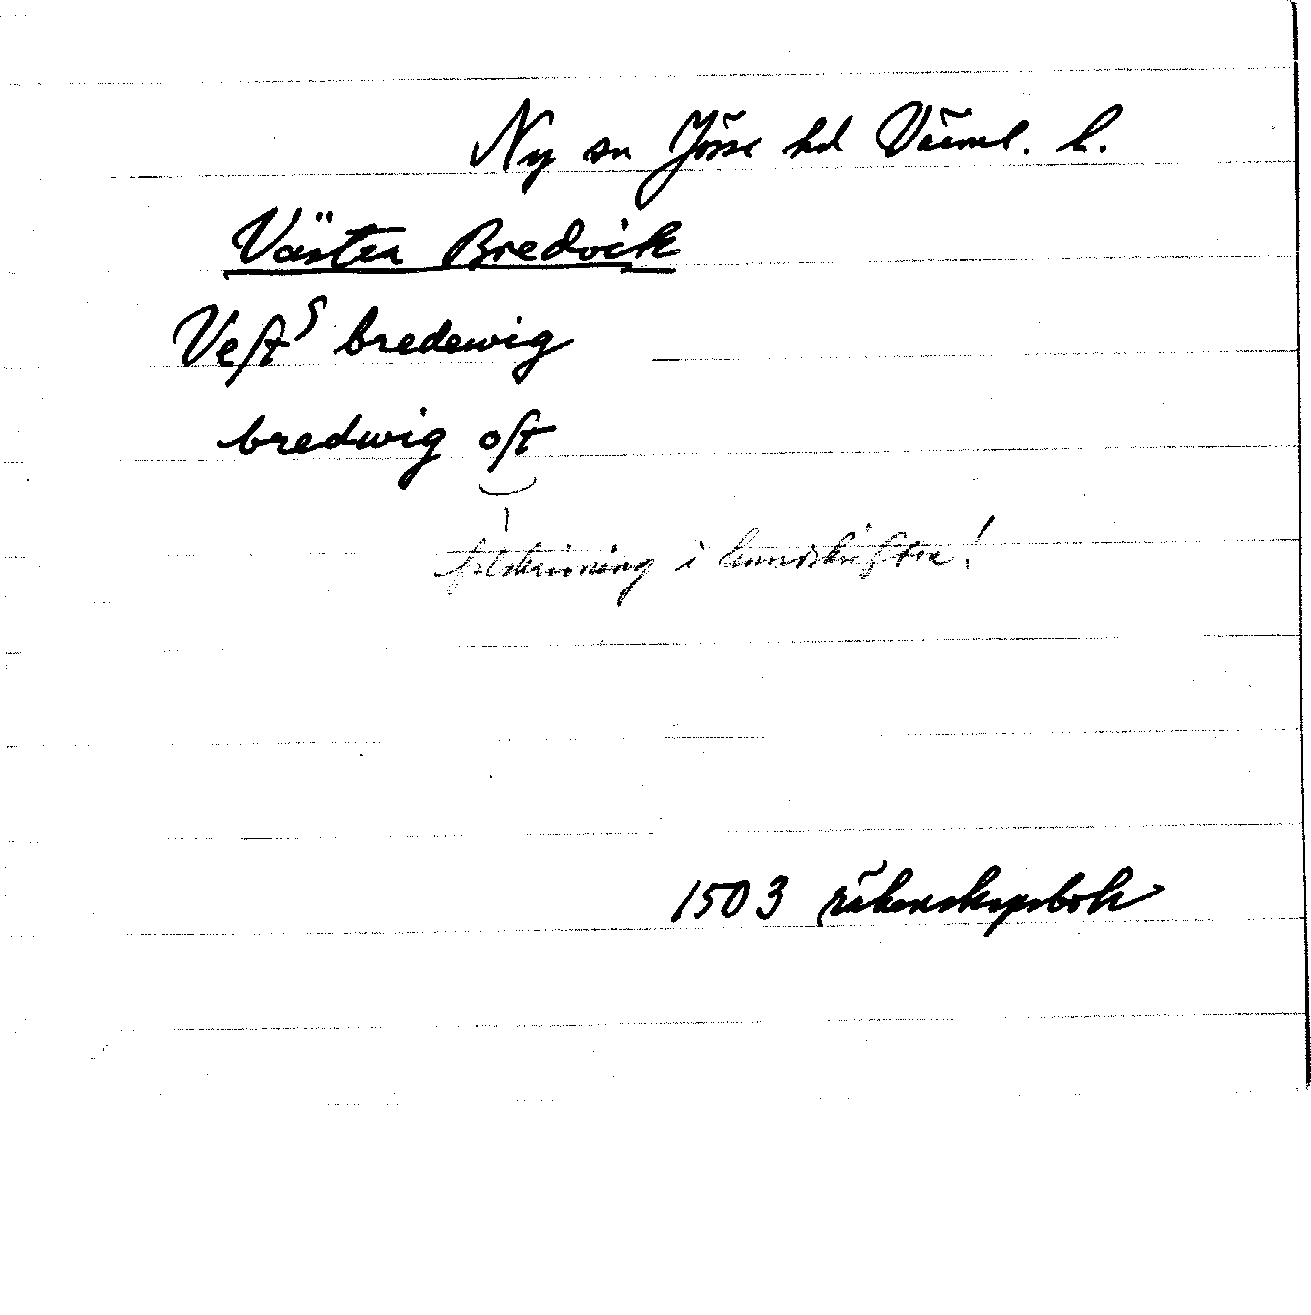 Ny sn Jösse hd Värml. l.
Västra Bredvik
Veſtˢ bredewig
bredwig oſt
felskrivning i handskriften!
1503 räkenskapsbok